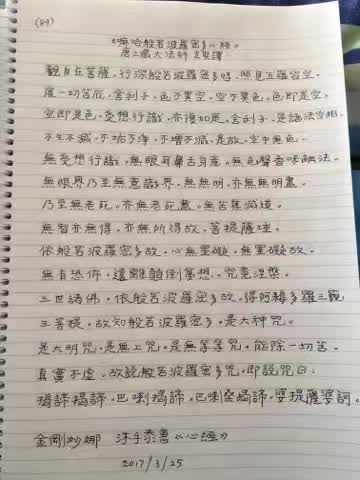 (89)
《嘛哈般若波羅蜜多心經》
唐三藏大法師玄奘譯
觀自在菩薩。行深般若波羅蜜多時。照見五蘊皆空。
度一切苦厄。舍利子。色不異空。空不異色。色即是空。
空即是色。受想行識。亦復如是。舍利子。是諸法空相。
不生不滅。不垢不淨。不增不減。是故。空中無色。
無受想行識。無眼耳鼻舌身意。無色聲香味觸法。
無眼界乃至無意識界。無無明。亦無無明盡。
乃至無老死。亦無老死盡。無苦集滅道。
無智亦無得。亦無所得故。菩提薩埵。
依般若波羅蜜多故。心無罣礙。無罣礙故。
無有恐怖。遠離顛倒夢想。究竟涅槃。
三世諸佛。依般若波羅蜜多故。得阿耨多羅三藐
三菩提。故知般若波羅蜜多。是大神咒。
是大明咒。是無上咒。是無等等咒。能除一切苦。
真實不虛。故說般若波羅蜜多咒。即說咒曰:
揭諦揭諦。巴喇揭諦。巴喇僧揭諦。菩提薩婆訶。
金剛妙娜 沐手恭書《心經》
2017/3/25